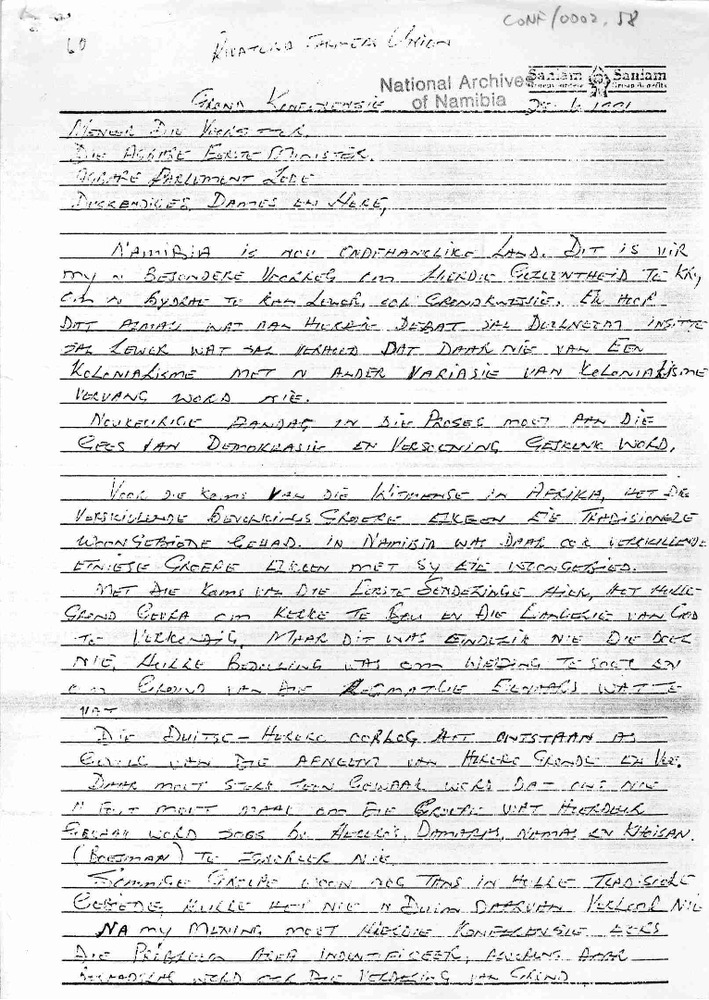 CONF/0002.58
60
FARMERS UNION
National Archives
of Namibia
Sanlam Sanlam
GROND KONFERENSIE 1991
MENEER DIE VOORSITTER,
DIE AGBARE EERSTE MINISTER,
AGBARE PARLEMENT LEDE
DAMES EN HERE,
NAMIBIA IS NOU ONDEHANKLIKE LAND. DIT IS VIR
MY N BESONDERE VOORREG OM HIERDIE GELEENTHEID TE KRY,
OM N BYDRAE TE KAN LEWER, OOR GRONDKWESSIE. EK HOOP
DAT ALMAL WAT AAN HIERDIE DEBAT SAL DEELNEEM INSETTE
SAL LEWER WAT SAL VERHOED DAT DAAR NIE VAN EEN
KOLONIALISME MET N ANDER VARIASIE VAN KOLONIALISME
VERVANG WORD NIE.
NOUKEURIGE AANDAG IN DIE PROSES MOET AAN DIE
GEES VAN DEMOKRASIE EN VERSOENING GESKENK WORD.
VOOR DIE KOMS VAN DIE WITMENSE IN AFRIKA, HET DIE
VERSKILLENDE BEVOLKINGS GROEPE ELKEEN SIE TRADISIONELE
WOONGEBIEDE GEHAD. IN NAMIBIA WAS DAAR OOK VERSKILLENDE
ETNIESE GROEPE ELKEEN MET SY EIE WOONGEBIED.
MET DIE KOMS VAN DIE EERSTE SENDELINGE HIER, HET HULLE
GROND GEVRA OM KERKE TE BOU EN DIE EVANGELIE VAN GOD
TE VERKONDIG, MAAR DIT WAS EINDELIK NIE DIE DOEL
NIE, HULLE BEDOELING WAS OM WEIDING TE SOEK EN
OM GROND VAN DIE REGMATIGE EIENAARS WAT TE
VAT
DIE DUITSE-HERERO OORLOG HET ONTSTAAN AS
GEVOLG VAN DIE AFNEEM VAN HERERO GRONDE EN VEE.
DAAR MOET STERK TEEN GEWAAK WORD DAT ONS NIE
N FOUT MOET MAAK OM DIE GROEPE WAT HIERDEUR
GERAAK WORD SOOS DIE HERERO'S, DAMARAS, NAMAS EN KHOISAN.
(BOESMAN) TE IGNOREER NIE.
SOMMIGE GROEPE WOON NOG TANS IN HULLE TRADISIONELE
GEBIEDE, HULLE HET NIE N DUIM DAARVAN VERLOOR NIE
NA MY MENING MOET HIERDIE KONFERENSIE EERS
DIE PROBLEEM AREA INDENTIFISEER, ALVORENS DAAR
WORD OOR DIE VERDELING VAN GROND